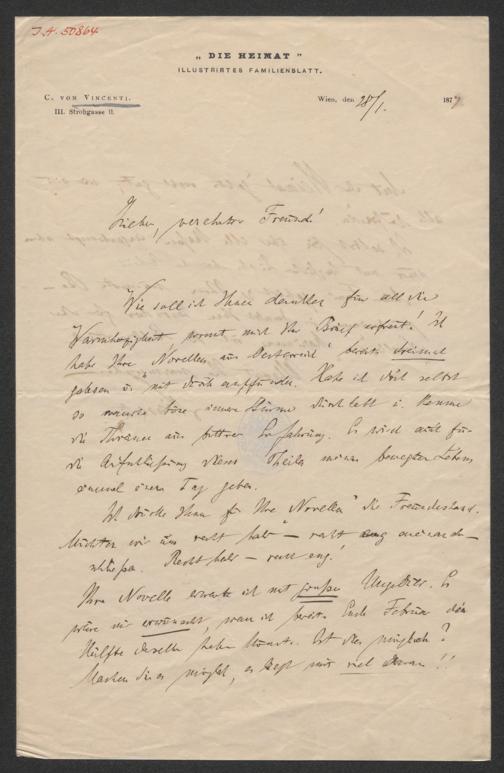 J.N. 50864
„ DIE HEIMAT "
ILLUSTRIRTES FAMILIENBLATT.
C. VON VINCENTI.
Wien, den 28/1. 187
III. Strohgasse 11.
Lieber, verehrter Freund!
Wie soll ich Ihnen danken für all die
Warmherzigkeit, womit mich Ihr Brief erfreut! Ich
habe Ihre Novellen aus Oesterreich bereits dreimal
gelesen u. mit durchempfunden. Habe ich doch selbst
so manche böse innere Stürme durchlebt u. kenne
die Thränen aus bittrer Erfahrung. Es wird auch für
die dieses Theiles meines bewegten Lebens
einmal einen Tag geben.
Ich drücke Ihnen für Ihre Novellen die Freundeshand.
Möchten wir uns recht bald – recht eng aneinander-
schließen. Recht bald – recht eng!
Ihre Novelle erwarte ich mit großer Ungeduld. Es
wäre mir erwünscht, wenn ich bereits Ende Februar die
Hälfte derselben haben könnte. Ist dies möglich?
Machen Sie es möglich, es liegt mir viel daran!!